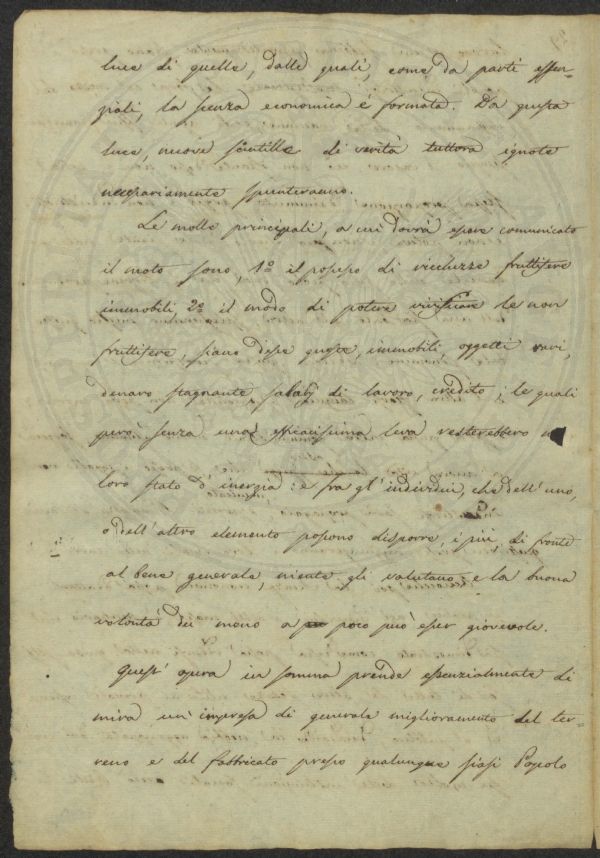 luce di quelle, dalle quali, come da parti essen-
ziali, la scienza economica è formata. Da questa
luce, nuove scintille di verità tuttora ignote
necessariamente spunteranno.
Le molle principali, a cui dovrà essere comunicato
il moto sono, 1º il possesso di ricchezze fruttifere
immobili, 2º il modo di potere vivificare le non
fruttifere, siano desse queste, immobili, oggetti rari,
denaro stagnante, salarj di lavoro, credito; le quali
però senza una efficacissima leva resterebbero
loro stato d'inerzia: e fra gl'individui, che dell'uno,
o dell'altro elemento possono disporre, i più, di fronte
al bene generale, niente gli valutano; e la buona
volontà dei meno a poco può esser giovevole.
Quest'opera in somma prende essenzialmente di
mira un'impresa di generale miglioramento del ter-
reno e del fabbricato presso qualunque siasi Popolo